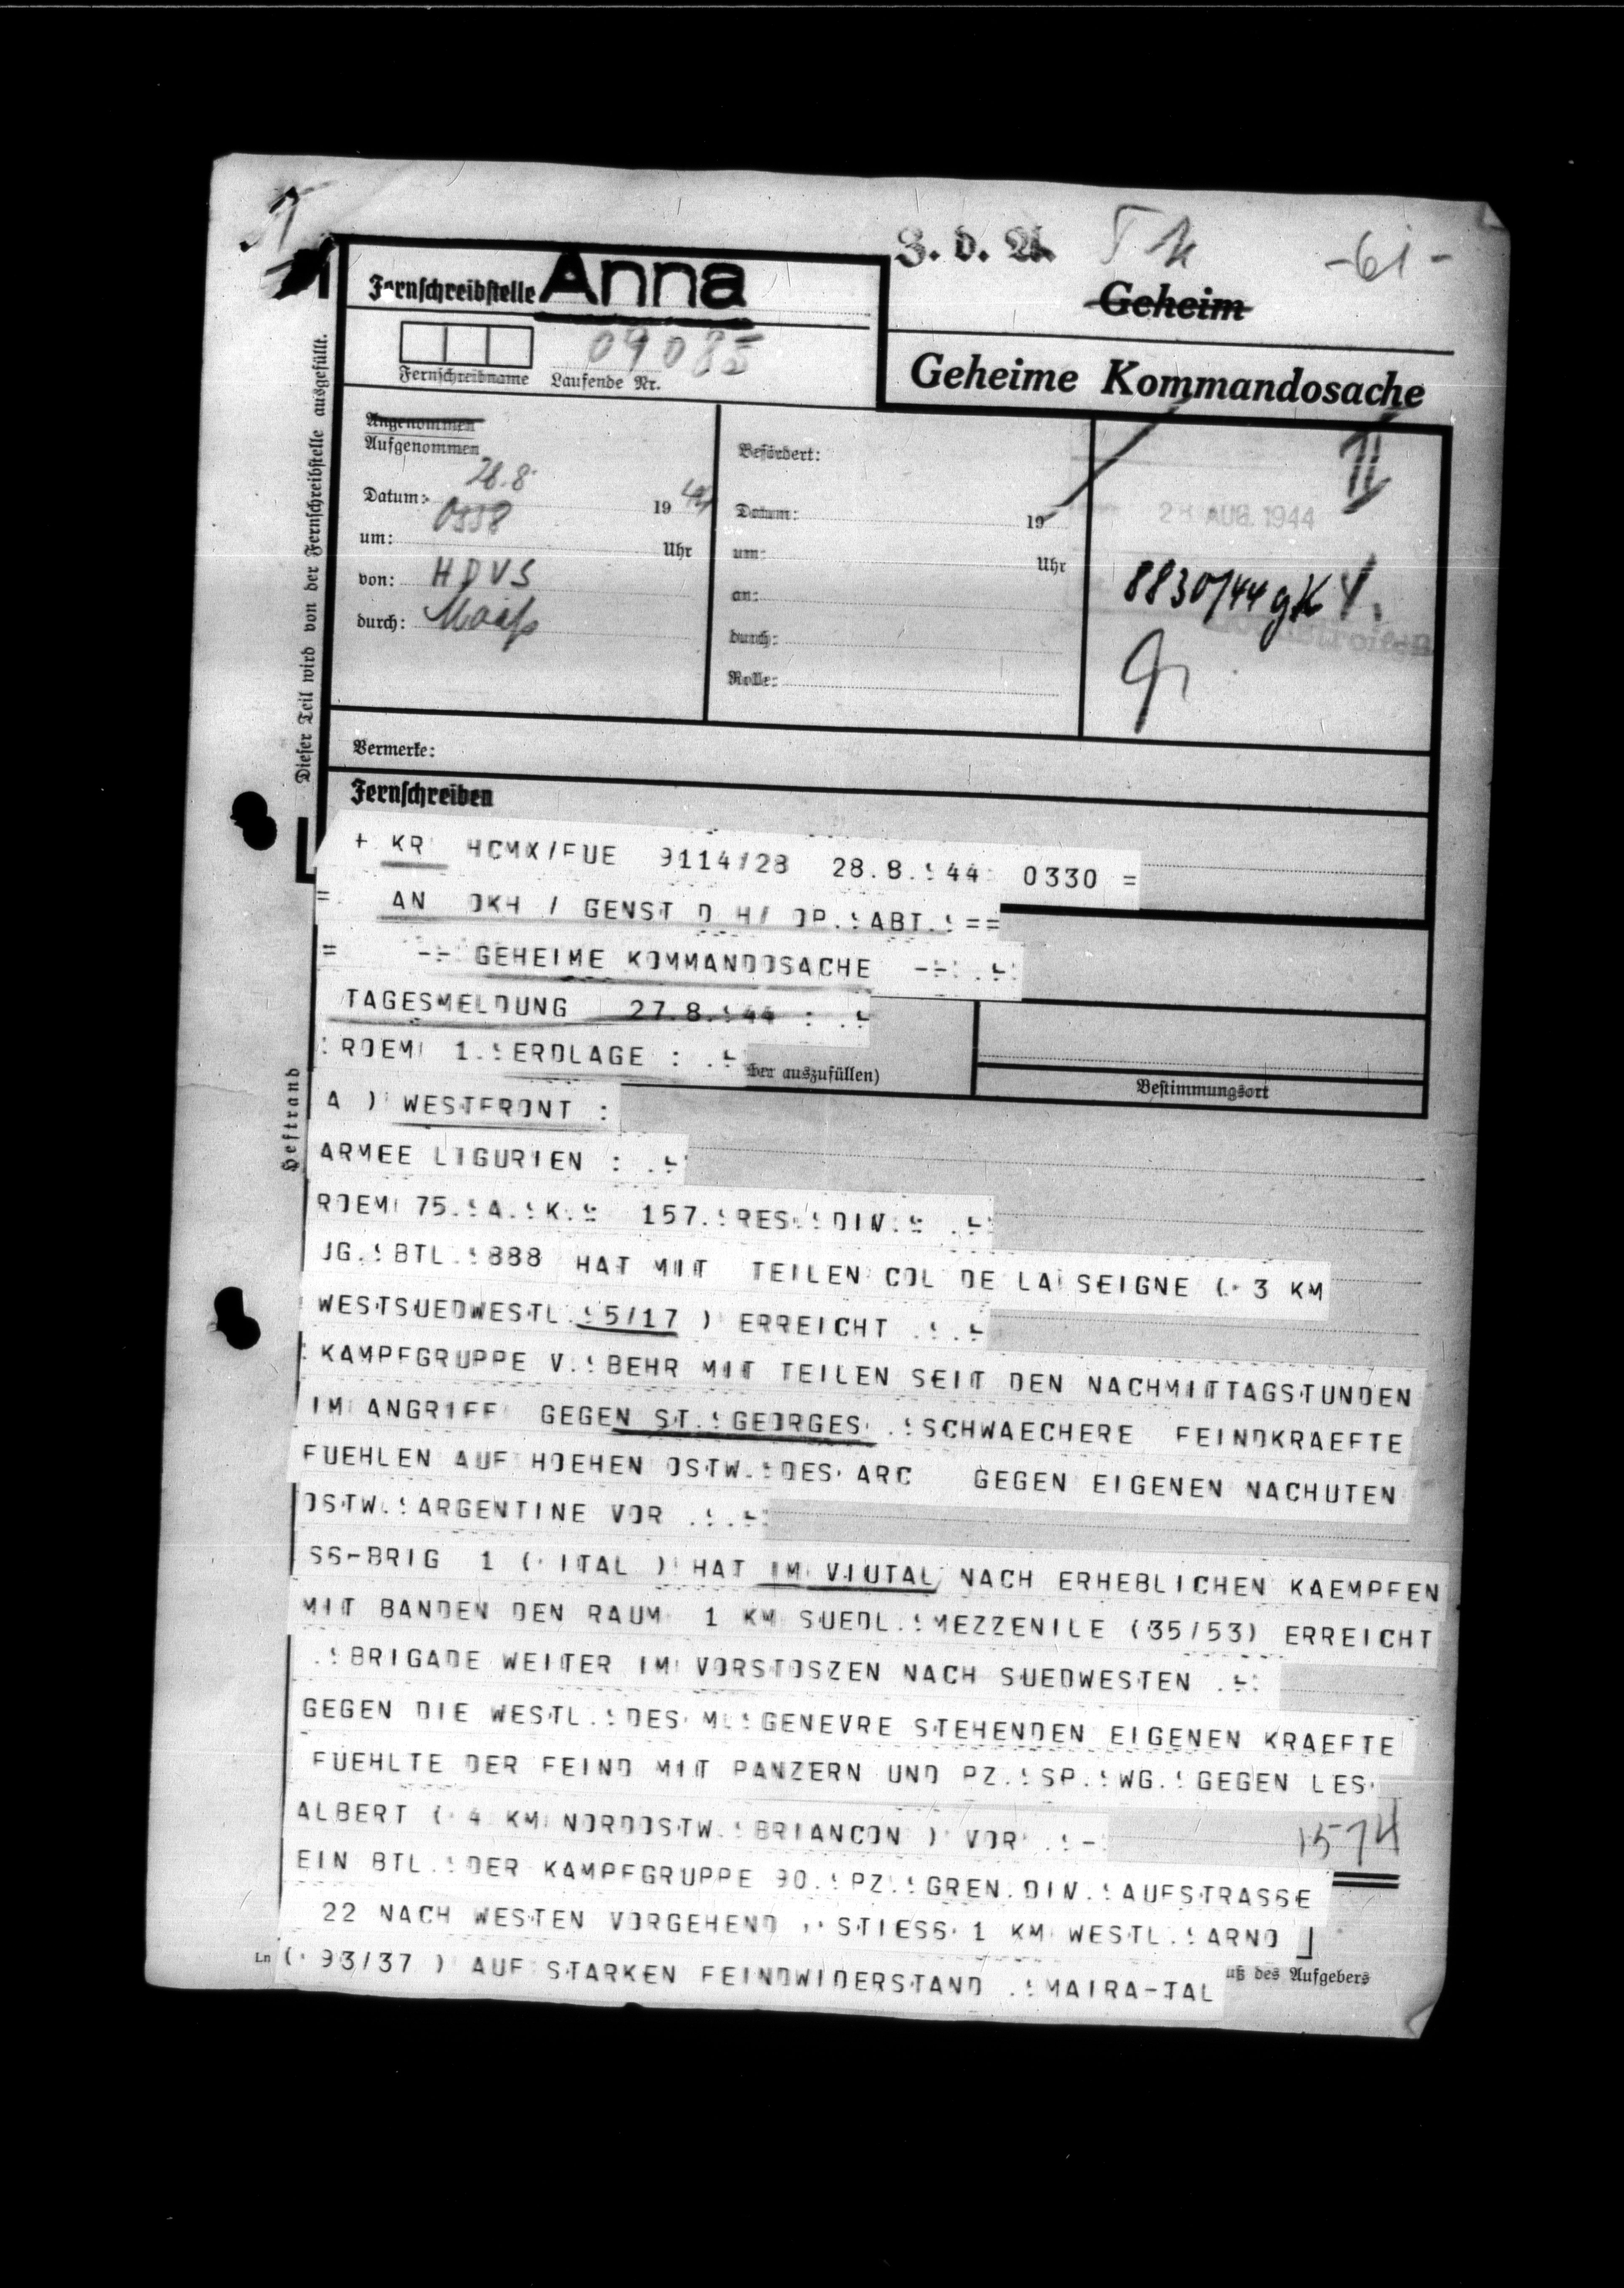 Z. d. A.
-61-
Fernschreibstelle Anna
Geheim
09085
Fernschreibname Laufende Nr.
Geheime Kommandosache
Dieser Teil wird von der Fernschreibstelle ausgefüllt.
Angenommen
Aufgenommen
Datum: 28.8. 1944
um: 0558 Uhr
von: HDVS
durch: Maaß
Befördert:
Datum: 19
um: Uhr
an:
durch:
Rolle:
II
28. AUG. 1944
8830/44 gK
Vermerke:
Fernschreiben
+ KR HCMX/FUE 9114/28 28.8.44 0330 =
= AN OKH / GENST D H/ OP. ABT. ==
= -- GEHEIME KOMMANDOSACHE --
TAGESMELDUNG 27.8.44 :
ROEM 1. ERDLAGE :
ber auszufüllen)
Bestimmungsort
Heftrand
A ) WESTFRONT :
ARMEE LIGURIEN :
ROEM 75. A. K. 157. RES. DIV.
JG. BTL. 888 HAT MIT TEILEN COL DE LA SEIGNE ( 3 KM
WESTSUEDWESTL. 5/17 ) ERREICHT .
KAMPFGRUPPE V. BEHR MIT TEILEN SEIT DEN NACHMITTAGSTUNDEN
IM ANGRIFF GEGEN ST. GEORGES . SCHWAECHERE FEINDKRAEFTE
FUEHLEN AUF HOEHEN OSTW. DES ARC GEGEN EIGENEN NACHUTEN
OSTW. ARGENTINE VOR .
SS-BRIG 1 ( ITAL ) HAT IM VIUTAL NACH ERHEBLICHEN KAEMPFEN
MIT BANDEN DEN RAUM 1 KM SUEDL. MEZZENILE (35/53) ERREICHT
. BRIGADE WEITER IM VORSTOSZEN NACH SUEDWESTEN .
GEGEN DIE WESTL. DES M. GENEVRE STEHENDEN EIGENEN KRAEFTE
FUEHLTE DER FEIND MIT PANZERN UND PZ. SP. WG. GEGEN LES
ALBERT ( 4 KM NORDOSTW. BRIANCON ) VOR . -
1574
EIN BTL. DER KAMPFGRUPPE 90. PZ. GREN. DIV. AUFSTRASSE
22 NACH WESTEN VORGEHEND , STIESS 1 KM WESTL. ARNO
Ln ( 93/37 ) AUF STARKEN FEINDWIDERSTAND . MAIRA-TAL
uß des Aufgebers